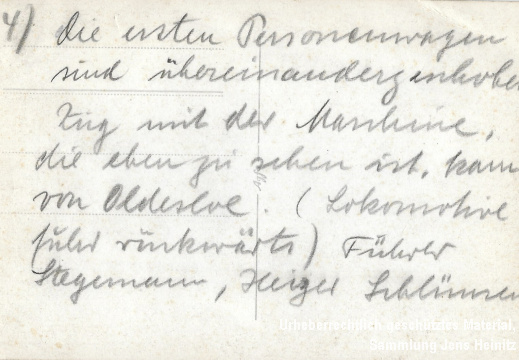 4) Die ersten Personenwagen
sind übereinandergeschoben
Zug mit der Maschine,
die eben zu sehen ist, kam
von Oldesloe. (Lokomotive
fuhr rückwärts) Führer
Stegemann, Heizer
Urheberrechtlich geschütztes Material,
Sammlung Jens Heinitz